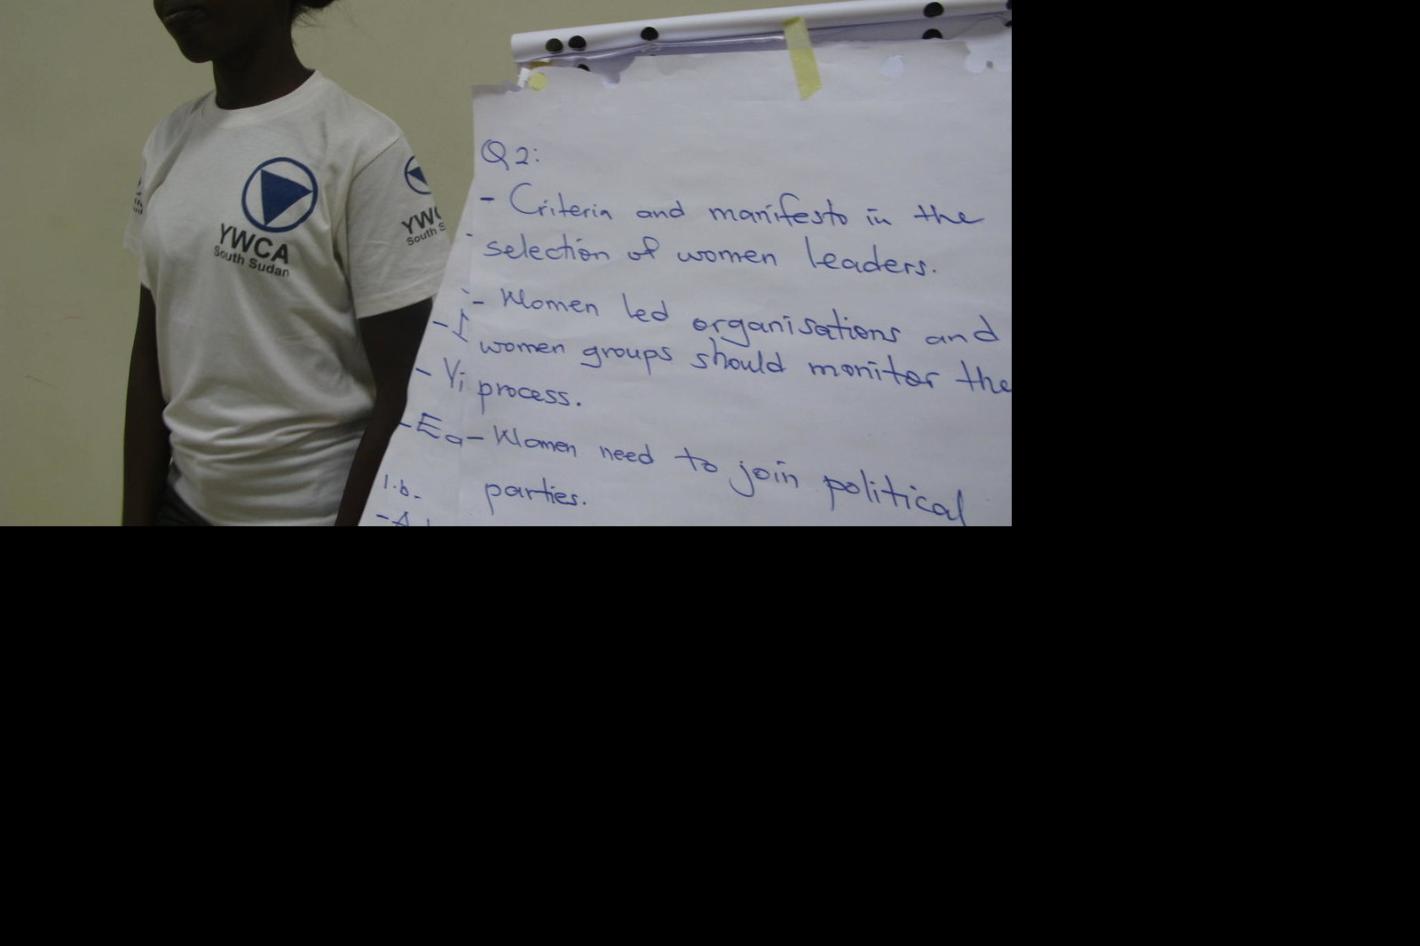 YWCA
South Sudan
YWC
South S
Q2:
- Criteria and manifesto in the
selection of women leaders.
- Women led organisations and
women groups should monitor the
process.
- Women need to join political
parties.
- I
- Vi
- Ea
1.b.